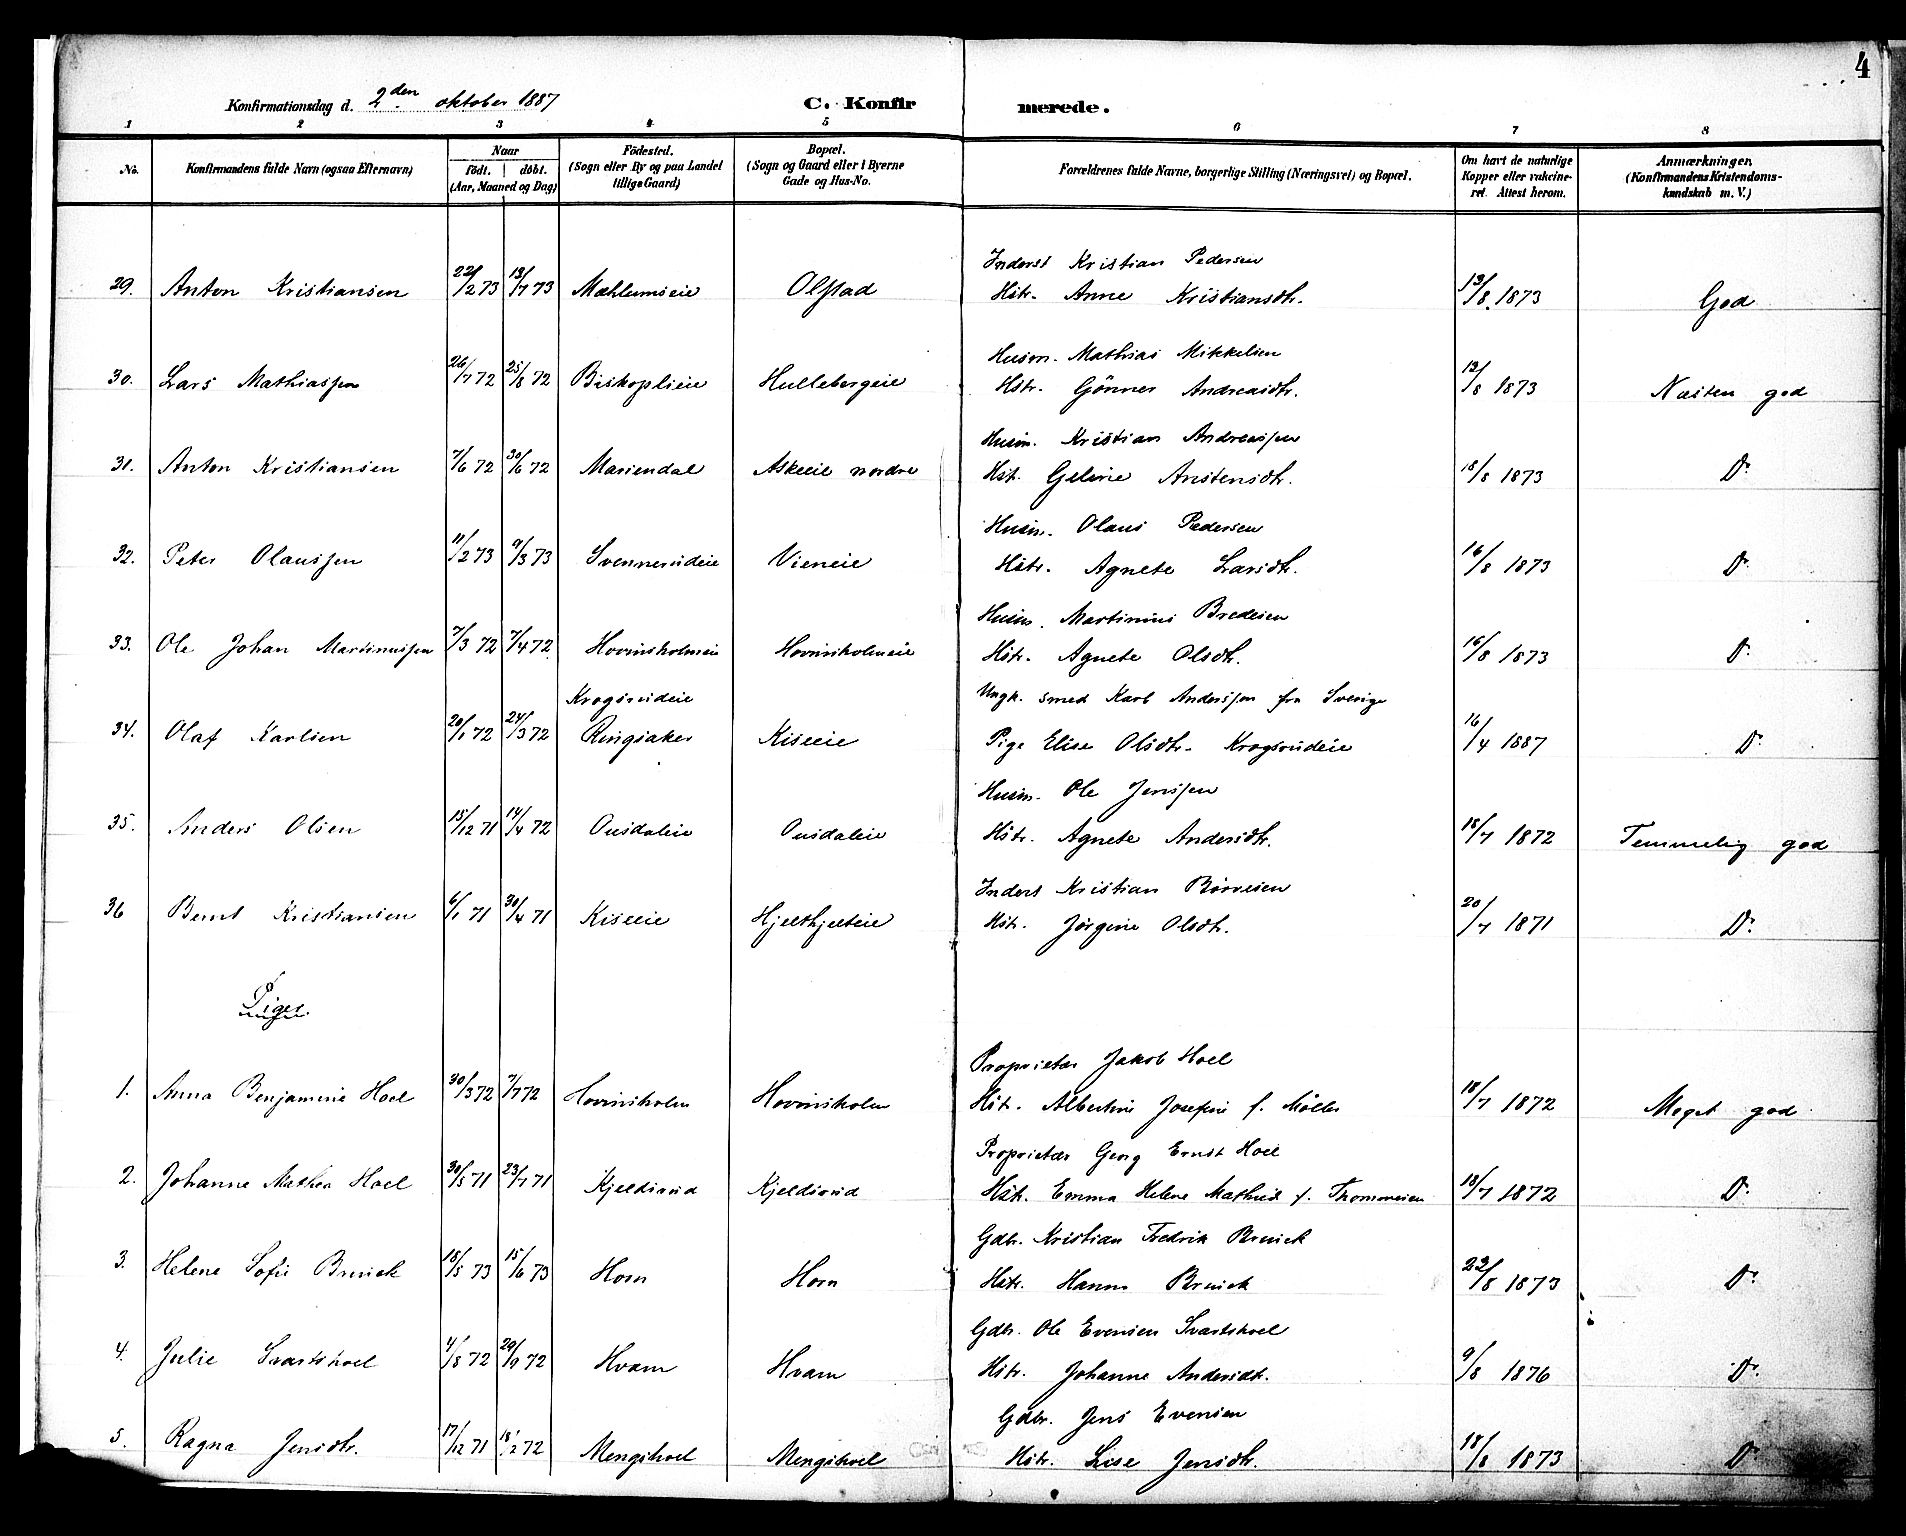 4
Konfirmationsdag d. 2den oktober 1887 C. Konfirmerede.
1 2 3 4 5 6 7 8
No. Konfirmandens fulde Navn (ogsaa Efternavn) Naar födt. döbt. (Aar, Maaned og Dag) Födested. (Sogn eller By og paa Landet tillige Gaard) Bopæl. (Sogn og Gaard eller i Byerne Gade og Hus-No. Forældrenes fulde Navne, borgerlige Stilling (Næringsvei) og Bopæl. Om havt de naturlige Kopper eller vakcineret. Attest herom. Anmærkninger. (Konfirmandens Kristendomskundskab m. V.)
Inderst Kristian Pedersen
29. Anton Kristiansen 22/2 73 13/7 73 Mæhlumseie Olstad Hstr. Anne Kristiansdtr. 13/8 1873 God
Husm. Mathias Mikkelsen
30. Lars Mathiassen 26/7 72 25/8 72 Biskoplieie Hullebergeie Hstr. Gönner Andreasdtr. 13/8 1873 Næsten god
Husm. Kristian Andreassen
31. Anton Kristiansen 7/6 72 30/6 72 Mariendal Askeeie nordre Hst. Geline Anstensdtr. 18/8 1873 Do
Husm. Olaus Pedersen
32. Peter Olaussen 11/2 73 9/3 73 Svennerudeie Vieneie Hstr. Agnete Larsdtr. 16/8 1873 Do
Husm. Martinus Bredesen
33. Ole Johan Martinussen 7/3 72 7/4 72 Hovinsholmeie Hovinsholmeie Hstr. Agnete Olsdtr. 16/8 1873 Do
Krogsrudeie Ungk. smed Karl Anderssen fra Sverige
34. Olaf Karlsen 20/1 72 24/3 72 Ringsaker Kiseeie Pige Elise Olsdtr. Krogsrudeie 16/4 1887 Do
Husm. Ole Jenssen
35. Anders Olsen 15/12 71 14/4 72 Ousdaleie Ousdaleie Hstr. Agnete Andersdtr. 18/7 1872 Temmelig god
Inderst Kristian Börresen
36 Bernt Kristiansen 6/1 71 30/4 71 Kiseeie Hjelthjelteie Hstr. Jørgine Olsdtr. 20/7 1871 Do
Piger
Proprietær Jakob Hoel
1. Anna Benjamine Hoel 30/3 72 7/7 72 Hovinsholm Hovinsholm Hstr. Albertine Josefine f. Möller 18/7 1872 Meget god
Proprietær Georg Ernst Hoel
2. Johanne Mathea Hoel 30/5 71 23/7 71 Kjeldsrud Kjeldsrud Hstr. Emma Helene Mathea f. Thommesen 18/7 1872 Do
Gdbr. Kristian Fredrik Bruick
3. Helene Sofie Bruick 18/5 73 15/6 73 Horn Horn Hstr. Hanna Bruick 22/8 1873 Do
Gdbr. Ole Evensen Svartshoel
4. Julie Svartshoel 4/8 72 29/9 72 Hvam Hvam Hstr. Johanne Andersdtr. 9/8 1876 Do
Gdbr. Jens Evensen
5. Ragna Jensdtr. 17/12 71 18/2 72 Mengshoel Mengshoel Hstr. Lise Jensdtr. 18/8 1873 Do